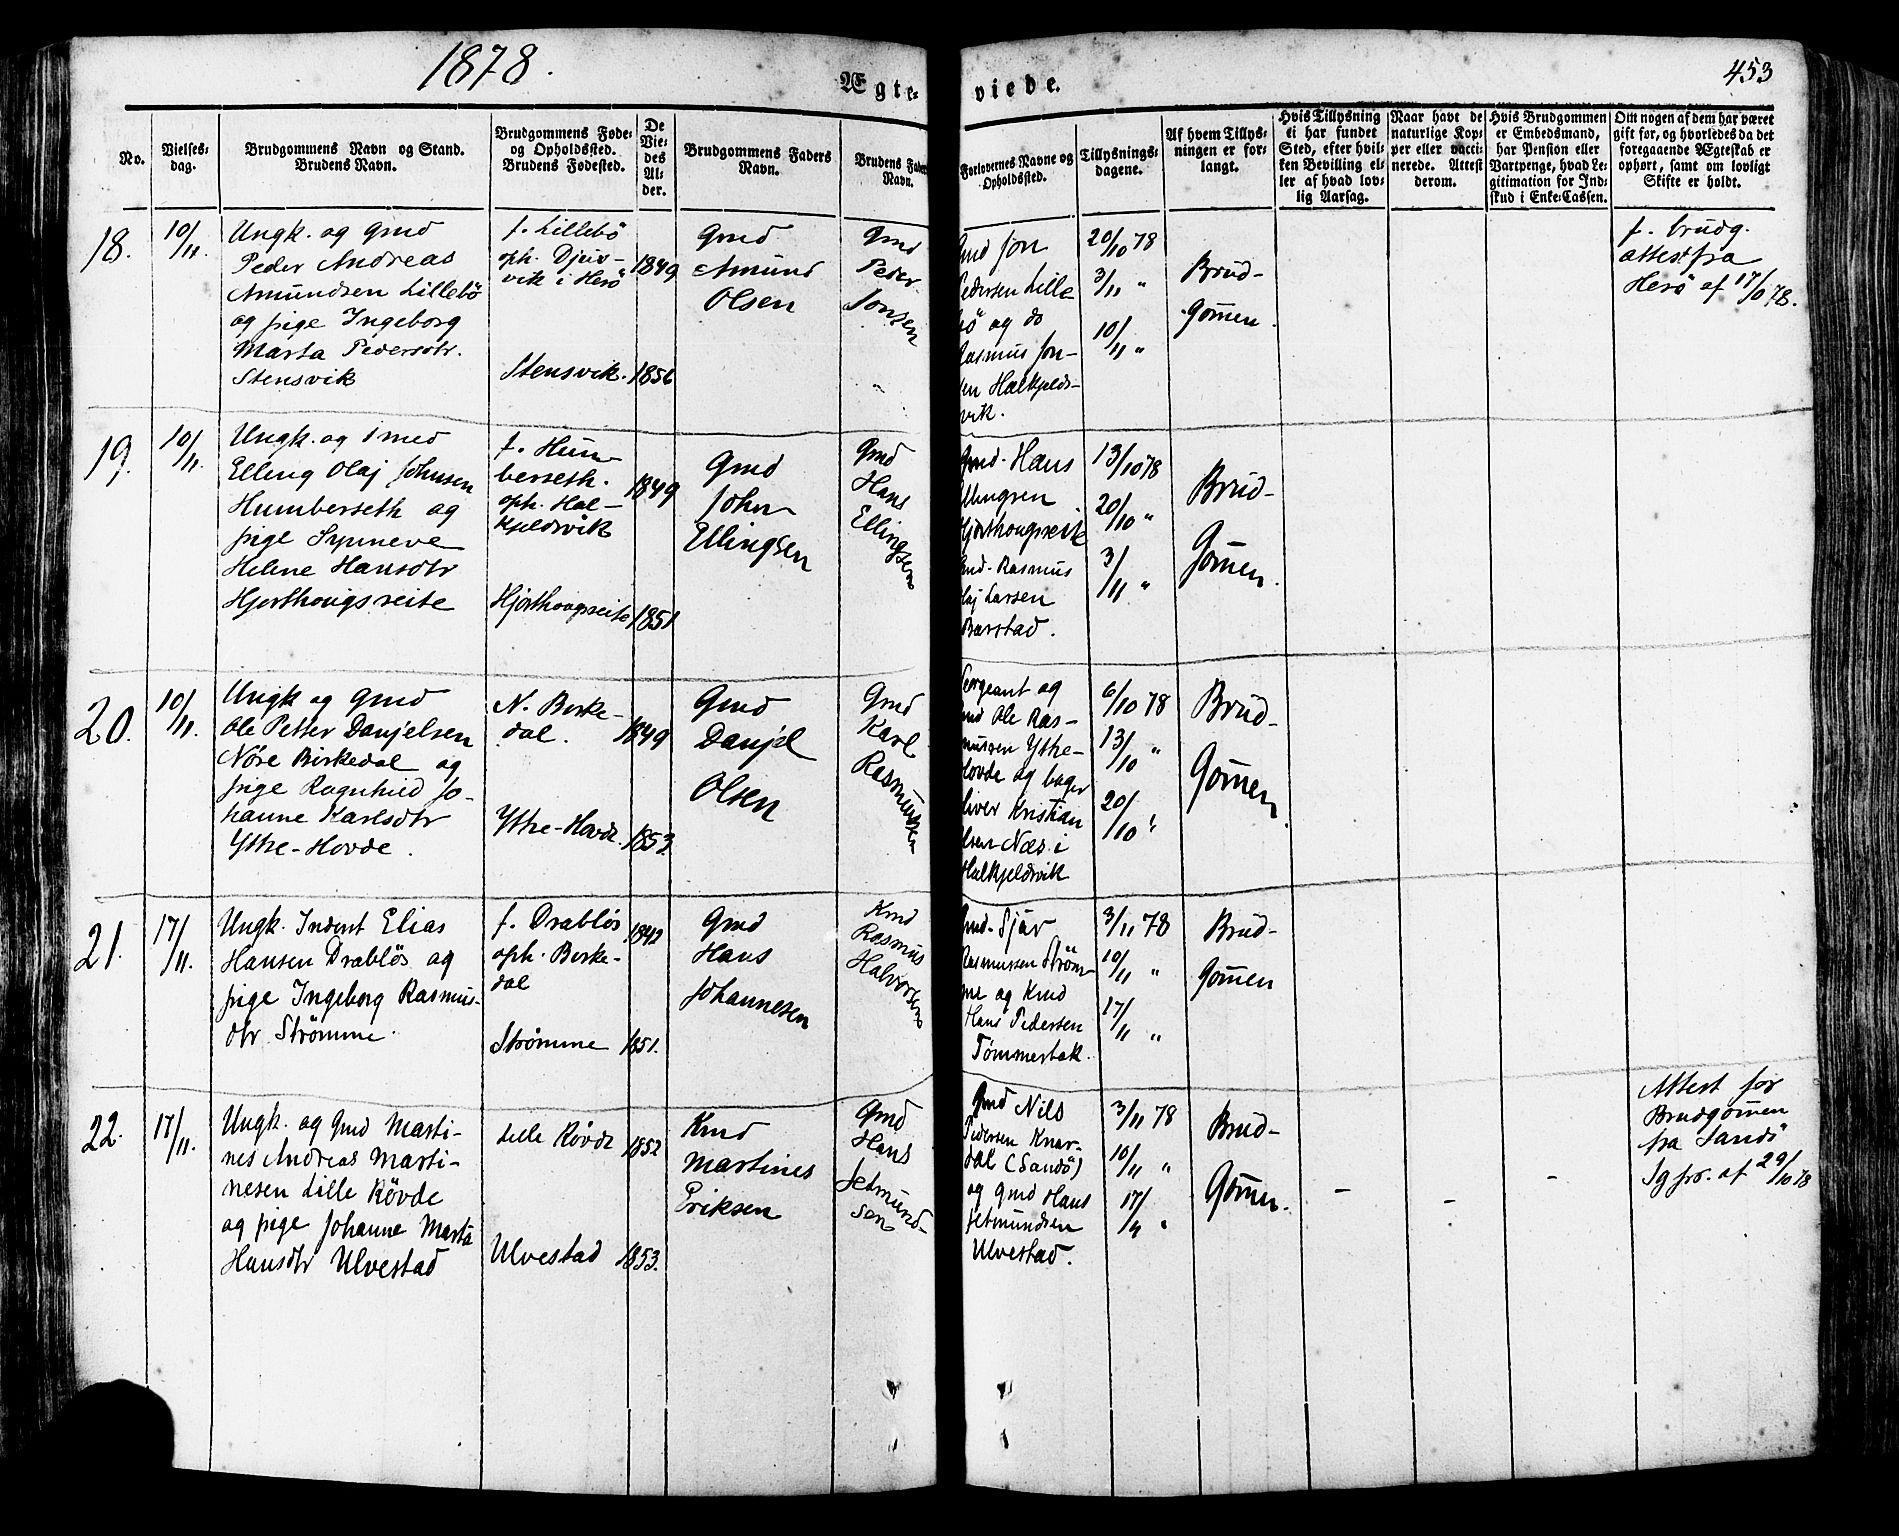 1878.
453
Ægte-
viede.
No.
Vielses-
dag.
Brudgommens Navn og Stand.
Brudens Navn.
Brudgommens Føde-
og Opholdssted.
Brudens Fødested.
De
Vie-
des
Al-
der.
Brudgommens Faders
Navn.
Brudens Faders
Navn.
Forlovernes Navne og
Opholdssted.
Tillysnings-
dagene.
Af hvem Tillys-
ningen er for-
langt.
Hvis Tillysning
ei har fundet
Sted, efter hvil-
ken Bevilling el-
ler af hvad lov-
lig Aarsag.
Naar havt de
naturlige Kop-
per eller vacci-
nerede. Attest
derom.
Hvis Brudgommen
er Embedsmand,
har Pension eller
Vartpenge, hvad Le-
gitimation for Ind-
skud i Enke-Cassen.
Om nogen af dem har været
gift før, og hvorledes da det
foregaaende Ægteskab er
ophørt, samt om lovligt
Skifte er holdt.
18.
10/11.
Ungk. og Gmd
Peder Andreas
Amundsen Lillebö
og pige Ingeborg
Marta Pedersdtr.
Stensvik
f. Lillebö
oph. Djuv-
vik i Herö
Stensvik.
1849
1856
Gmd
Amund
Olsen
Gmd
Peder
Jonsen
Gmd Jon
Pedersen Lille
bö og do
Rasmus Jon-
sen Halkjelds-
vik.
20/10 78
3/11 "
10/11 "
Brud-
gomen.
f. brudg.
attest fra
Herö af 17/10 78.
19.
10/11.
Ungk. og Smed
Elling Olaj Johnsen
Humberseth og
pige Synneve
Helene Hansdtr
Hjorthougsreite
f. Hum
berseth.
oph. Hal-
kjeldsvik
Hjorthougsreite
1849
1851
Gmd
John
Ellingsen
Gmd
Hans
Ellingsen
Gmd. Hans
Ellingsen
Hjorthougsreite
Gmd. Rasmus
Olaj Larsen
Barstad.
13/10 78
20/10 "
3/11 "
Brud-
Gomen.
20.
10/11.
Ungk og Gmd
Ole Petter Danjelsen
Nöre Birkedal og
pige Ragnhild Jo-
hanne Karlsdtr
Ytre-Hovde.
N. Berke-
dal.
Ytre-Hovde.
1849
1853.
Gmd
Danjel
Olsen
Gmd
Karl
Rasmussen
Sergeant og
Gmd Ole Ras-
mussen Ytre-
Hovde og bager
Oliver Kristian
Olsen Næs i
Halkjeldsvik
6/10 78
13/10 "
20/10 "
Brud-
Gomen.
21.
17/11.
Ungk. Inderst Elias
Hansen Drablös og
pige Ingeborg Rasmus-
dtr Strömme.
f. Drablös
oph. Berke-
dal
Strömme
1842
1851.
Gmd
Hans
Johannesen
Kmd
Rasmus
Halvorsen
Gmd. Sjur
Rasmussen Ström-
me og Kmd
Hans Pedersen
Tömmerbak.
3/11 78
10/11 "
17/11 "
Brud-
Gomen
22.
17/11.
Ungk. og Gmd Marti-
nes Andreas Marti-
nesen Lille Rövde
og pige Johanne Marta
Hansdtr Ulvestad
Lille Rövde
Ulvestad
1852
1853.
Kmd
Martines
Eriksen
Gmd
Hans
Jetmund-
sen
Gmd Nils
Pedersen Knar-
dal (Sandö)
og Gmd Hans
Jetmundsen
Ulvestad.
3/11 78
10/11 "
17/11 "
Brud-
Gomen.
-
-
-
Attest for
Brudgomen
fra Sandö
Sgpr. af 29/10 78